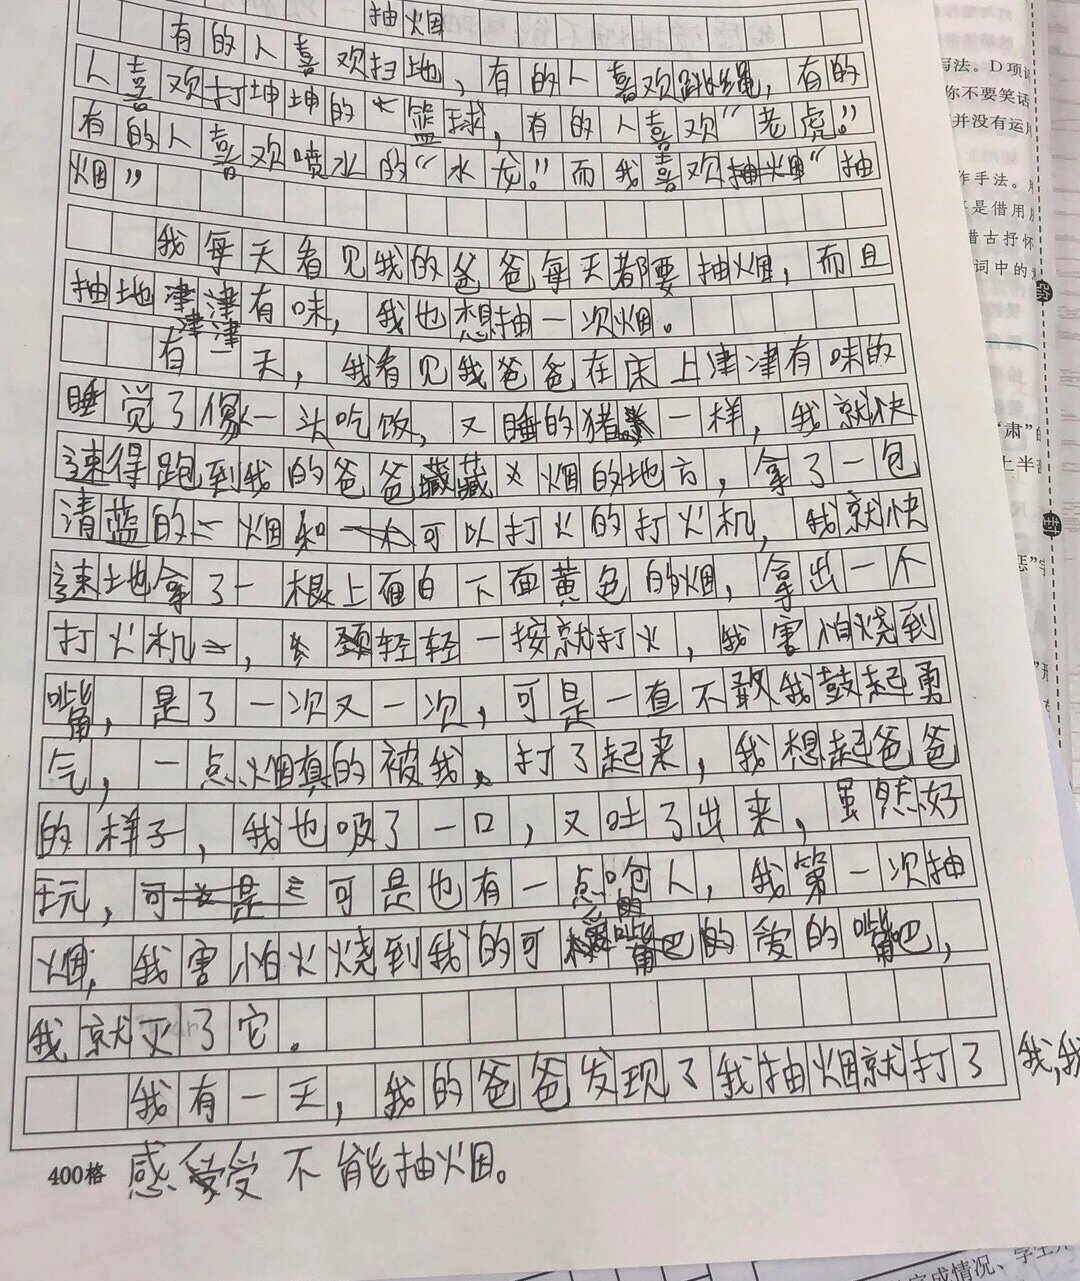 抽烟
有的人喜欢扫地，有的人喜欢跳绳，有的
人喜欢打坤坤的“篮球，有的人喜欢“老虎。”
有的人喜欢喷水的“水龙。”而我喜欢抽烟“抽
烟”
我每天看见我的爸爸每天都要抽烟，而且
抽地津津有味，我也想抽一次烟。
有一天，我看见我爸爸在床上津津有味的
睡觉了像一头吃饭，又睡的猪一样，我就快
速得跑到我的爸爸藏烟的地方，拿了一包
清蓝的烟和可以打火的打火机，我就快
速地拿了一根上面白下面黄色的烟，拿出一个
打火机，轻轻一按就打火，我害怕烧到
嘴，是了一次又一次，可是一直不敢我鼓起勇
气，一点烟真的被我，打了起来，我想起爸爸
的样子，我也吸了一口，又吐了出来，虽然好
玩，可是也有一点呛人，我第一次抽
烟，我害怕火烧到我的可爱的嘴巴，
我就灭了它。
我有一天，我的爸爸发现了我抽烟就打了我，我
400格 感受不能抽烟。
写法。D项
你不要笑话
并没有运用
作手法。
是借用
借古抒怀
词中的
“肃”的
上半
封
完成情况、学生